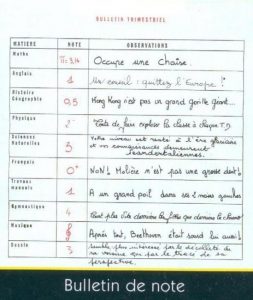 BULLETIN TRIMESTRIEL
MATIÈRE NOTE OBSERVATIONS
Maths π=3,14 Occupe une chaise
Anglais 1 Un conseil : quittez l'Europe !
Histoire Géographie 0,5 Hong Kong n'est pas un grand gorille géant...
Physique 2 de faire exploser la classe à chaque T.D.
Sciences Naturelles 3 Votre niveau est resté à l'ère glaciaire
et vos connaissances demeurent
néandertaliennes.
Français 0+ NON! Molière n'est pas une grosse dent!
Travaux manuels 1 A un grand poil dans sa main gauche
Gymnastique 4 Court plus vite derrière les filles que derrière le chrono!
Musique Après tout, Beethoven était sourd lui aussi!
Dessin 3 Semble plus intéressé par le décolleté de
sa voisine que par le tracé de sa
perspective.
Bulletin de note